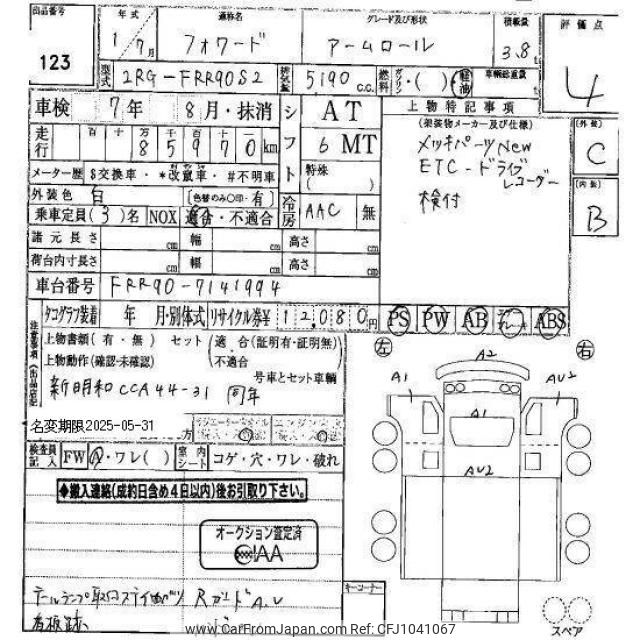 出品番号 年式 通称名 グレード及び形状 積載量 評価点
123 1/7月 フォワード アームロール 3.8 t 4
型式 2RG-FRR90S2 排気量 5190 c.c. 燃料 ガソリン・( )・軽油 車輌総重量 t
車検 7年 8月・抹消 シフト AT 上物特記事項
走行 百 十 万 千 百 十 85970 km 6 MT (架装物メーカー及び仕様) [外装] C
メッキパーツNew
ETC-ドライブレコーダー
検付
メーター歴 $交換車・*改竄車・#不明車 特殊( )
外装色 白 [色替のみ○印・有] [内装] B
乗車定員(3)名 NOX 適合・不適合 冷房 AAC 無
諸元長さ cm 幅 cm 高さ cm
荷台内寸長さ cm 幅 cm 高さ cm
車台番号 FRR90-7141994
タコグラフ装着 年 月・別体式 リサイクル券¥ 12,080円 PS PW AB ABS
注意事項《出品店記入》
上物書類(有・無) セット (適合(証明有・証明無)
上物動作(確認・未確認) 不適合
号車とセット車輌
新明和CCA44-31 同年
左 右
A2
A1 AU2
A1
AU2
名変期限2025-05-31
検査員記入 FW A・ワレ( ) 室内シート コゲ・穴・ワレ・破れ
◆搬入連絡(成約日含め4日以内)後お引取り下さい。
オークション査定済
IAA
テールランプ取口ステイ曲がり RガードA,U
看板跡
キーコーナー
スペア
www.CarFromJapan.com Ref: CFJ1041067